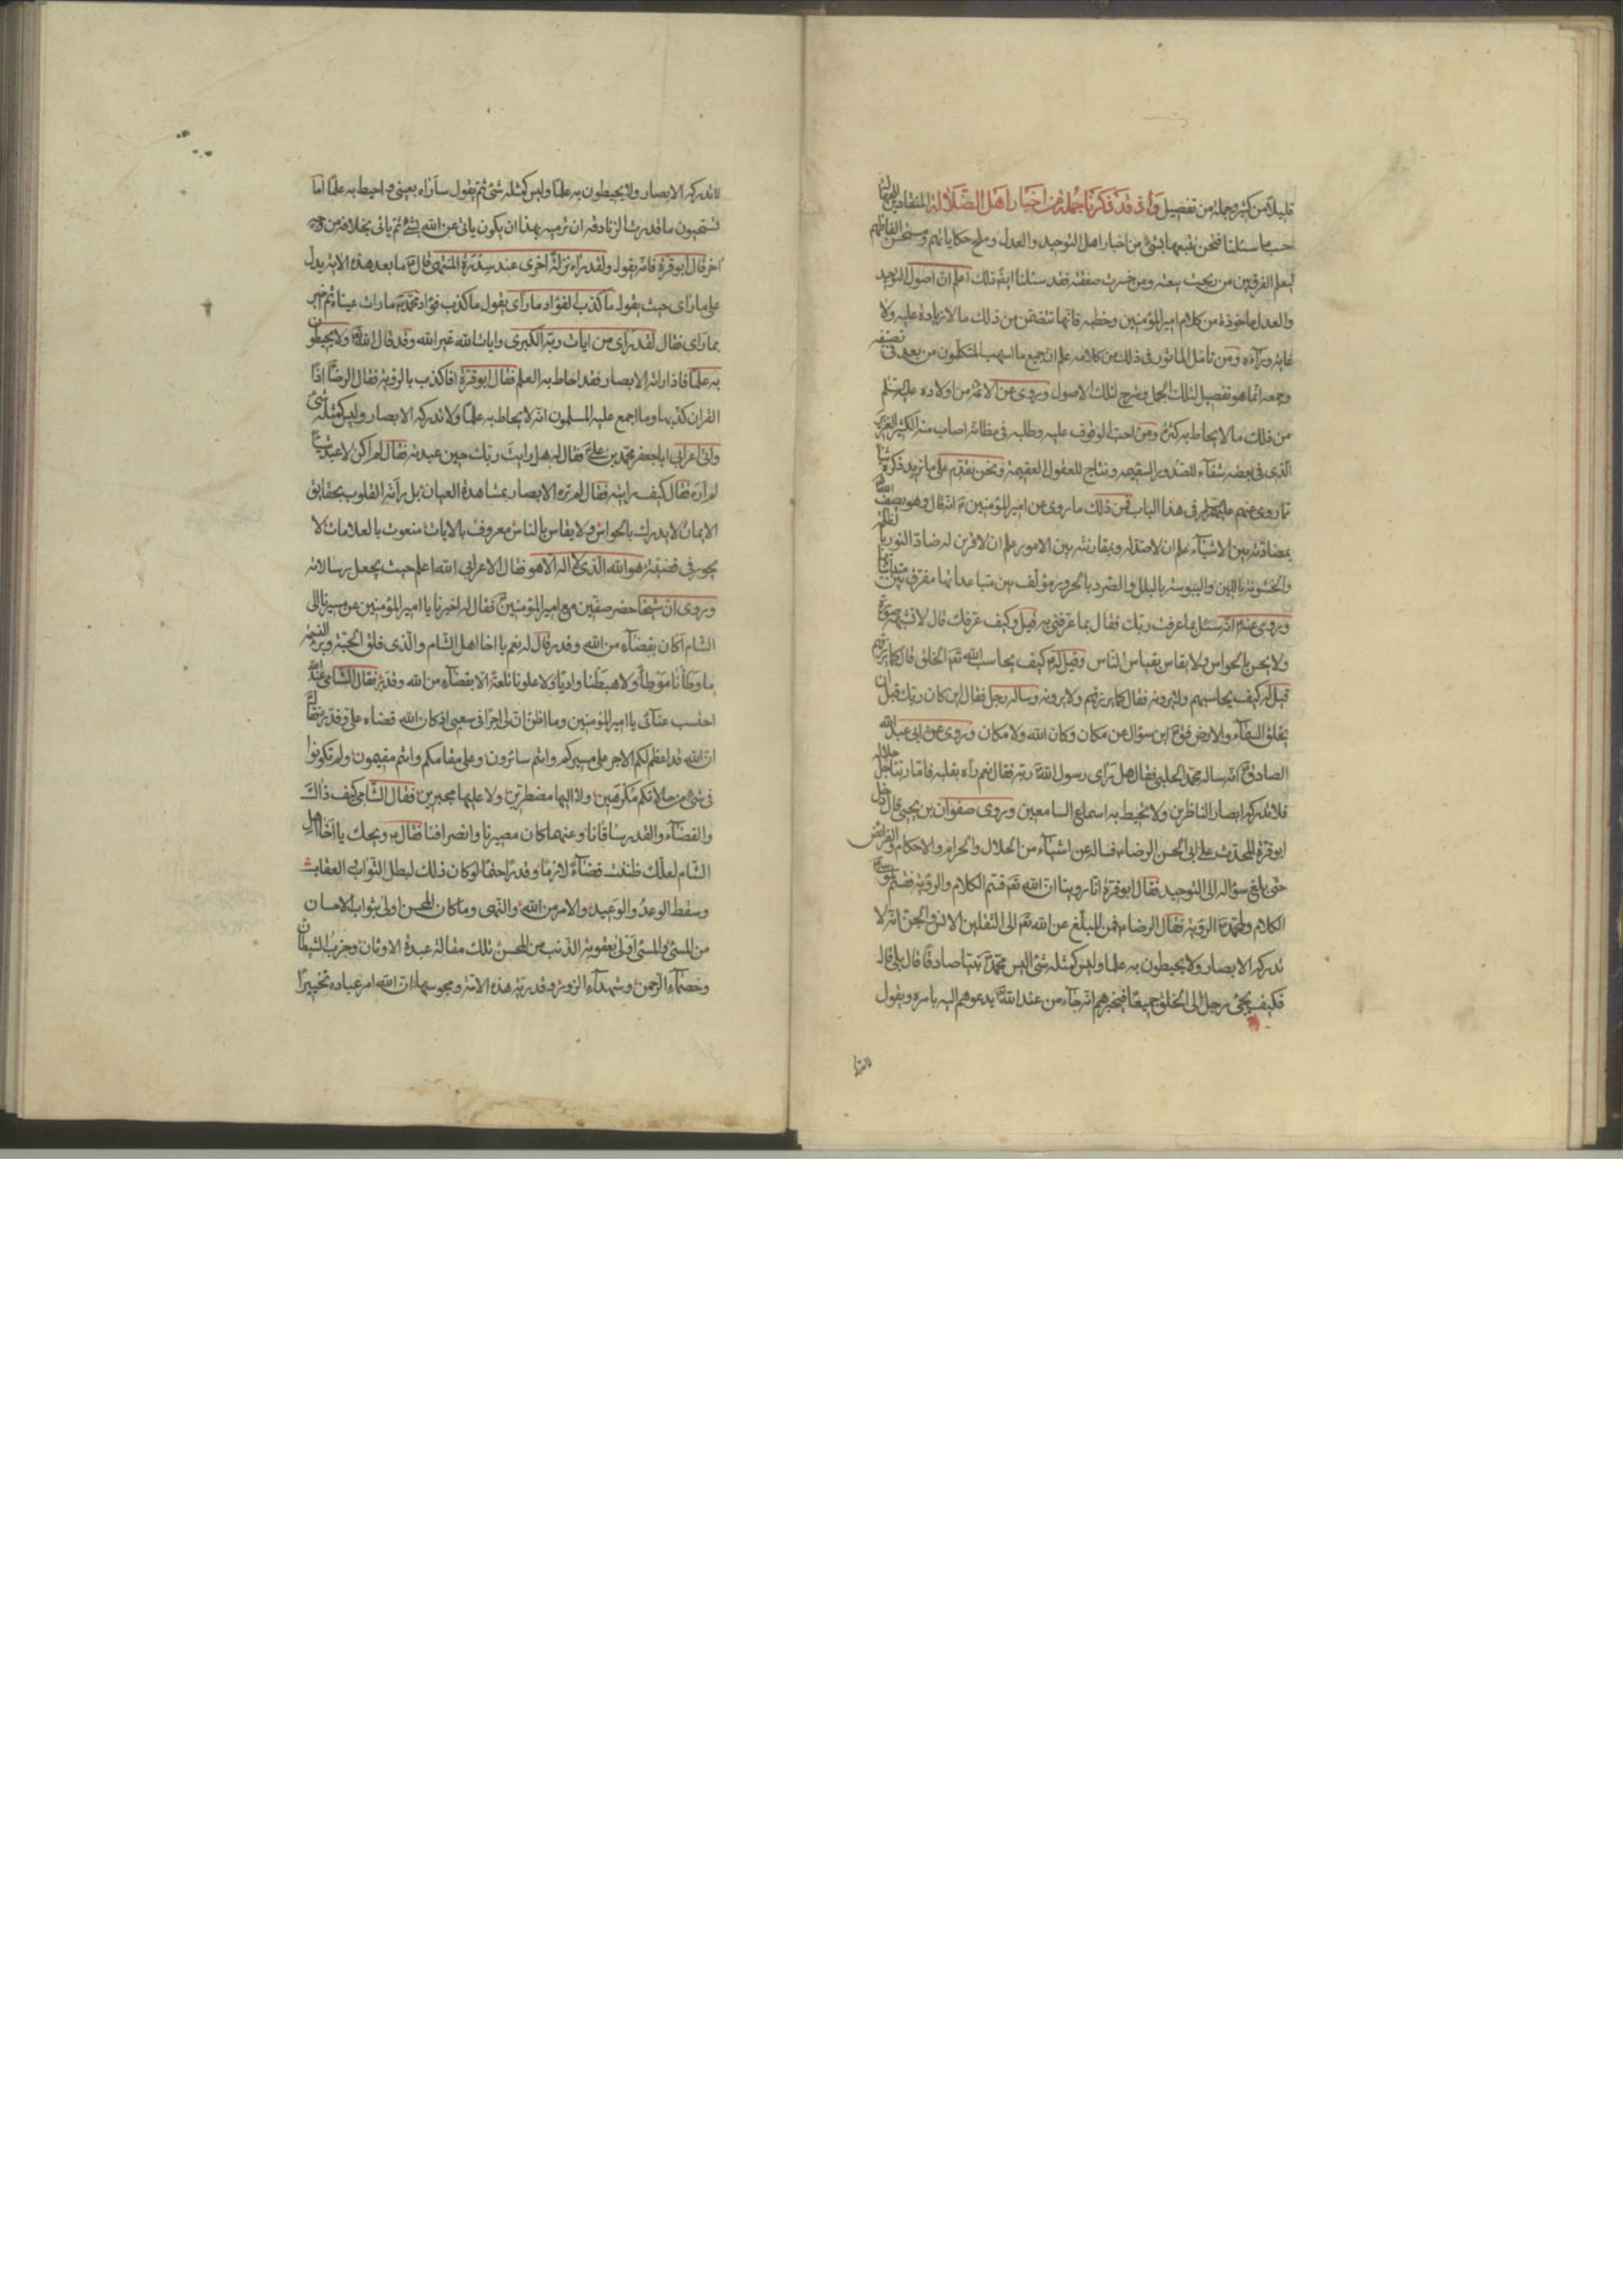 قليلا من كثير وجملة من تفصيل واذ قد ذكرنا جملة من اخبار اهل الضلالة المنقادين
حسب ما سئلنا فنحن نتبعها بشئ من اخبار اهل التوحيد والعدل وملح حكاياتهم ومستحسن الفاظهم
ليعلم الفرق بين من ربحت بيعته ومن خسرت صفقته فقد سئلنا ايضا ذلك اعلم ان اصول التوحيد
والعدل ماخوذة من كلام امير المؤمنين وخطبه فانها تتضمن من ذلك ما لا زيادة عليه ولا
غاية وراءه ومن تامل الماثور في ذلك من كلامه علم ان جميع ما اسهب المتكلمون من بعد في تصنيفه
وجمعه انما هو تفصيل لتلك الجمل وشرح لتلك الاصول وروى عن الائمة من اولاده عليهم السلم
من ذلك ما لا يحاط به كثرة ومن احب الوقوف عليه وطلبه في مظانه اصاب منه الكثير الغزير
الذى في بعضه شفاء للصدور السقيمه ونتاج للعقول العقيمة ونحن نقدم على ما نريد ذكره شيئا
مما روى عنهم عليهم السلام في هذا الباب فمن ذلك ما روى عن امير المؤمنين ع انه قال وهو يصف الله
بمضادته بين الاشياء علم ان لا ضد له وبمقارنته بين الامور علم ان لا قرين له ضاد النور بالظلمة
والخشونة باللين واليبوسة بالبلل والصرد بالحرور مؤلف بين متباعداتها مفرق بين متدانياتها
وروى عنه ع انه سئل بما عرفت ربك فقال بما عرفني به قيل وكيف عرفك قال لا تشبهه صورة
ولا يحس بالحواس ولا يقاس بقياس الناس وقيل له كيف يحاسب الله تع الخلق قال كما يرزقهم
قيل له كيف يحاسبهم ولا يرونه فقال كما يرزقهم ولا يرونه وساله رجل فقال اين كان ربك قبل ان
يخلق السماء والارض فقال ع اين سؤال عن مكان وكان الله ولا مكان وروى عن ابي عبد الله
الصادق ع انه ساله محمد الحلبي فقال هل راى رسول الله ربه فقال نعم راه بقلبه فاما ربنا جل جلاله
فلا تدركه ابصار الناظرين ولا يحيط به اسماع السامعين وروى صفوان بن يحيى قال دخل
ابو قرة المحدث على ابي الحسن الرضا ع فساله عن اشياء من الحلال والحرام والاحكام والفرائض
حتى بلغ سؤاله الى التوحيد فقال ابو قرة انا روينا ان الله تع قسم الكلام والروية فقسم لموسى
الكلام ولمحمد الروية فقال الرضا ع فمن المبلغ عن الله تع الى الثقلين الانس والجن انه لا
تدركه الابصار ولا يحيطون به علما وليس كمثله شئ اليس محمد نبيا صادقا قال بلى قال
فكيف يجئ رجل الى الخلق جميعا فيخبرهم انه جاء من عند الله يدعوهم اليه بامره ويقول
لا تدركه
لا تدركه الابصار ولا يحيطون به علما وليس كمثله شئ ثم يقول ساراه بعيني واحيط به علما اما
تستحيون ما قدرت الزنادقة ان ترميه بهذا ان يكون ياتي عن الله بشئ ثم ياتي بخلافه من وجه
اخر قال ابو قرة فانه يقول ولقد راه نزلة اخرى عند سدرة المنتهى قال ع ما بعد هذه الاية يدل
على ما راى حيث يقول ما كذب الفؤاد ما راى يقول ما كذب فؤاد محمد ما رات عيناه ثم اخبر
بما راى فقال لقد راى من ايات ربه الكبرى وايات الله غير الله وقد قال الله ولا يحيطون
به علما فاذا راته الابصار فقد احاط به العلم فقال ابو قرة افاكذب بالروية فقال الرضا اذا
القران كذبها وما اجمع عليه المسلمون انه لا يحاط به علما ولا تدركه الابصار وليس كمثله شئ
واتى اعرابي ابا جعفر محمد بن علي فقال له هل رايت ربك حين عبدته فقال لم اكن لاعبد شيئا
لم اره فقال كيف رايته فقال لم تره الابصار بمشاهدة العيان بل راته القلوب بحقايق
الايمان لا يدرك بالحواس ولا يقاس بالناس معروف بالايات منعوت بالعلامات لا
يجور في قضيته هو الله الذى لا اله الا هو فقال الاعرابي الله اعلم حيث يجعل رسالاته
وروى ان شيخا حضر صفين مع امير المؤمنين فقال له اخبرنا يا امير المؤمنين عن مسيرنا الى
الشام اكان بقضاء من الله وقدر قال له نعم يا اخا اهل الشام والذى فلق الحبة وبرء النسمة
ما وطانا موطا ولا هبطنا واديا ولا علونا تلعة الا بقضاء من الله وقدر فقال الشامي عند الله
احتسب عنائى يا امير المؤمنين وما اظن ان لي اجرا في سعيي اذ كان الله قضاه علي وقدره فقال
ان الله قد اعظم لكم الاجر على مسيركم وانتم سائرون وعلى مقامكم وانتم مقيمون ولم تكونوا
في شئ من حالاتكم مكرهين ولا اليها مضطرين ولا عليها مجبرين فقال الشامي كيف ذاك
والقضاء والقدر ساقانا وعنهما كان مسيرنا وانصرافنا فقال ع ويحك يا اخا اهل
الشام لعلك ظننت قضاء لازما وقدرا حتما لو كان ذلك لبطل الثواب والعقاب
وسقط الوعد والوعيد والامر من الله والنهى وما كان المحسن اولى بثواب الاحسان
من المسئ والمسئ اولى بعقوبة الذنب من المحسن تلك مقالة عبدة الاوثان وحزب الشيطان
وخصماء الرحمن وشهداء الزور وقدرية هذه الامة ومجوسها ان الله امر عباده تخييرا